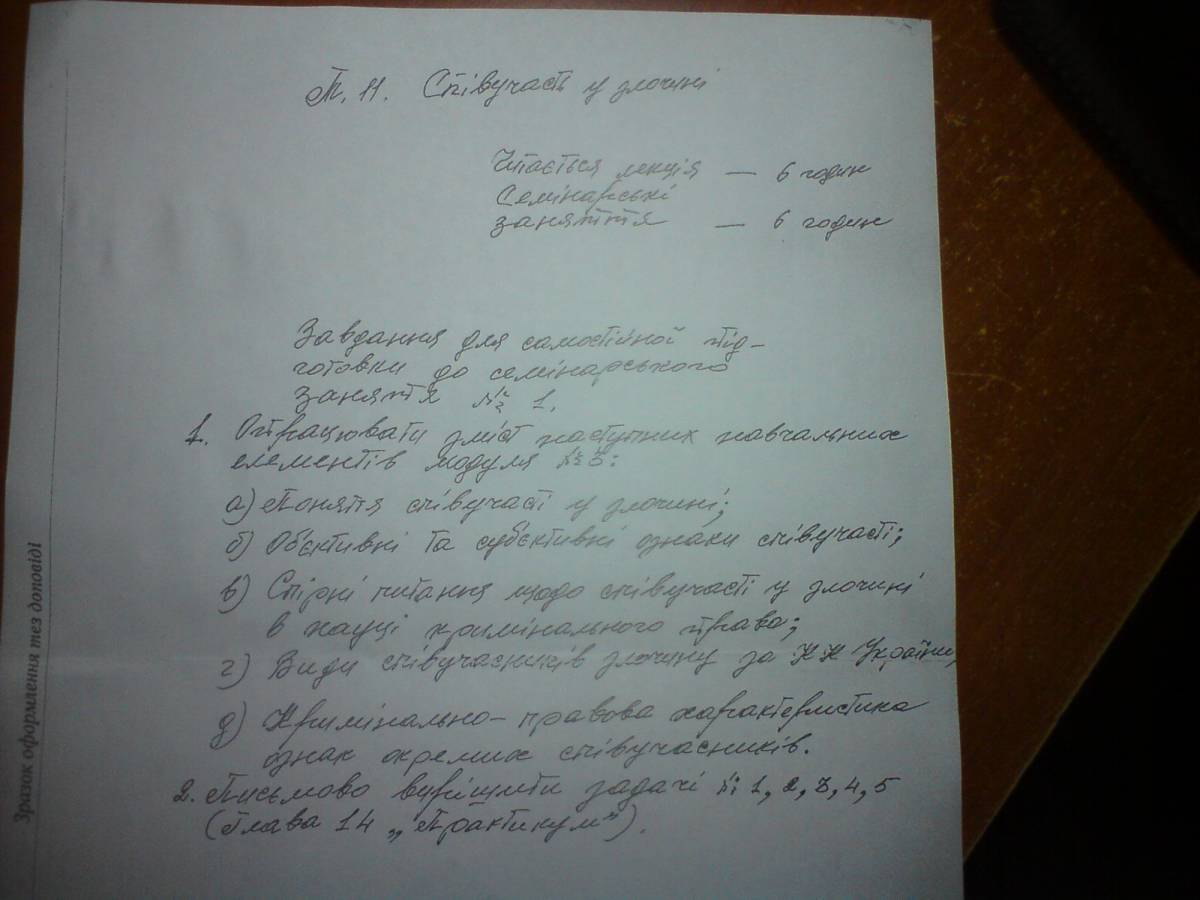 Т. 11. Співучасть у злочині
Читається лекція — 6 годин
Семінарські
заняття — 6 годин
Завдання для самостійної під-
готовки до семінарського
заняття № 1.
1. Опрацювати зміст наступних навчальних
елементів модуля № 3:
а) Поняття співучасті у злочині;
б) Об'єктивні та суб'єктивні ознаки співучасті;
в) Спірні питання щодо співучасті у злочині
в науці кримінального права;
г) Види співучасників злочину за КК України,
д) Кримінально-правова характеристика
ознак окремих співучасників.
2. Письмово вирішити задачі №: 1, 2, 3, 4, 5
(Глава 14 „Практикум").
Зразок оформлення тез доповіді